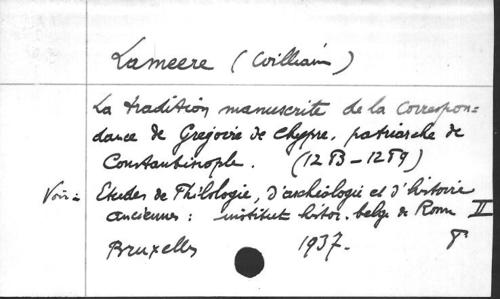 Lameere (William)
La tradition manuscrite de la correspon=
dance de Grégoire de Chypre, patriarche de
Constantinople. (1283-1289)
Voir: Etudes de Philologie, d'archéologie et d'histoire
anciennes: institut histor. belge de Rome II
Bruxelles 1937.